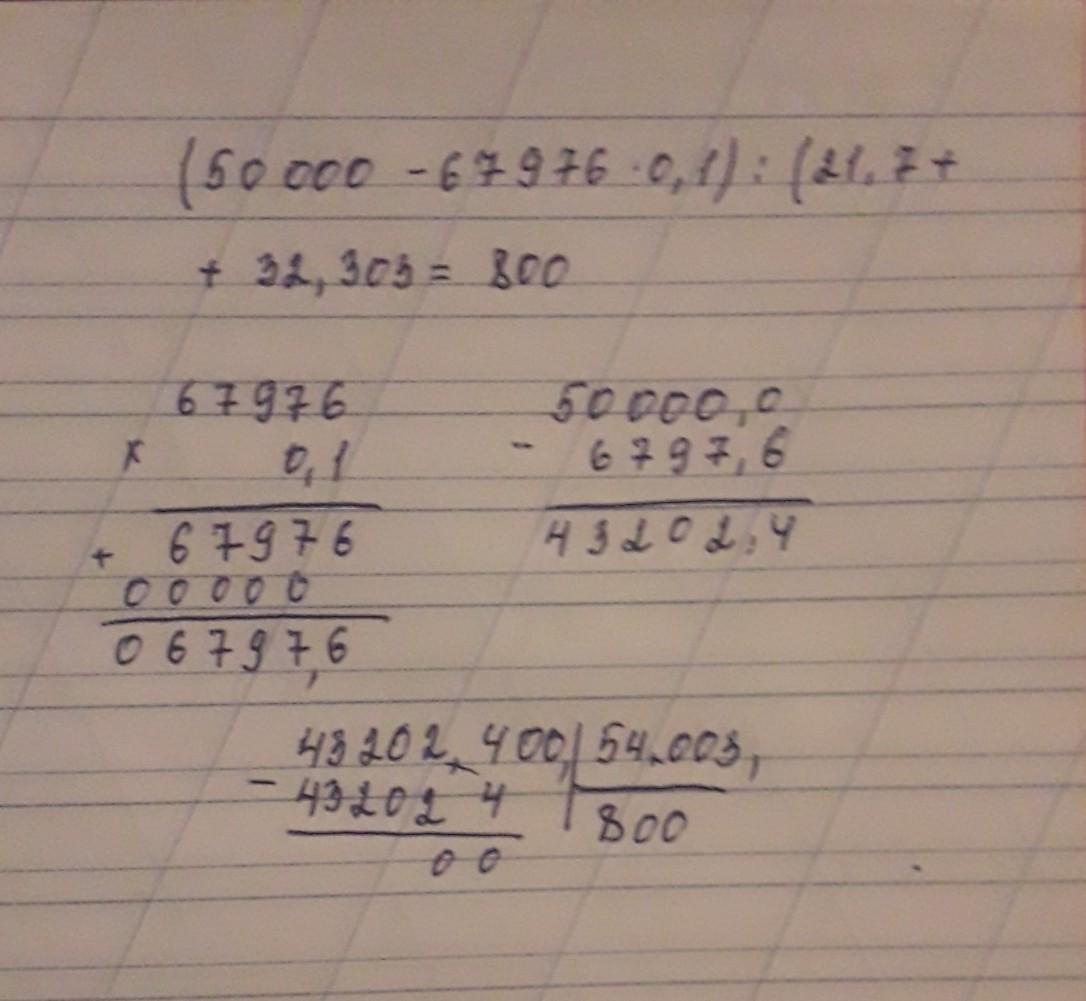 (50 000 - 67976 · 0,1) : (21.7 +
+ 32,303 = 800
67976
× 0,1
67976
+
00000
06797,6
50000,0
- 6797,6
43202,4
43202,400, | 54.003,
- 43202 4 | 800
00